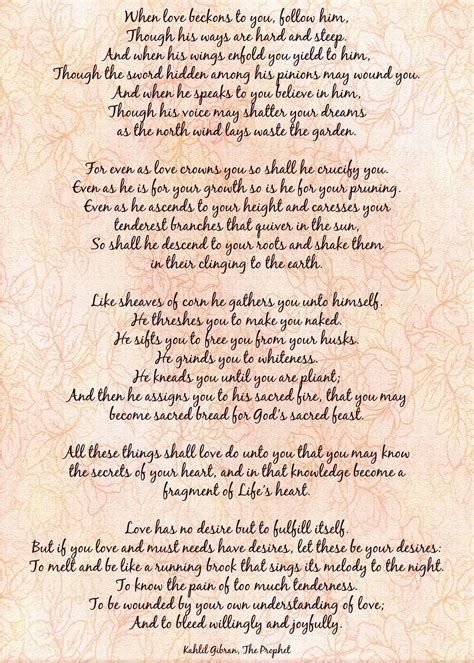 When love beckons to you, follow him,
Though his ways are hard and steep.
And when his wings enfold you yield to him,
Though the sword hidden among his pinions may wound you.
And when he speaks to you believe in him,
Though his voice may shatter your dreams
as the north wind lays waste the garden.
For even as love crowns you so shall he crucify you.
Even as he is for your growth so is he for your pruning.
Even as he ascends to your height and caresses your
tenderest branches that quiver in the sun,
So shall he descend to your roots and shake them
in their clinging to the earth.
Like sheaves of corn he gathers you unto himself.
He threshes you to make you naked.
He sifts you to free you from your husks.
He grinds you to whiteness.
He kneads you until you are pliant;
And then he assigns you to his sacred fire, that you may
become sacred bread for God's sacred feast.
All these things shall love do unto you that you may know
the secrets of your heart, and in that knowledge become a
fragment of Life's heart.
Love has no desire but to fulfill itself.
But if you love and must needs have desires, let these be your desires:
To melt and be like a running brook that sings its melody to the night.
To know the pain of too much tenderness.
To be wounded by your own understanding of love;
And to bleed willingly and joyfully.
Kahlil Gibran, The Prophet